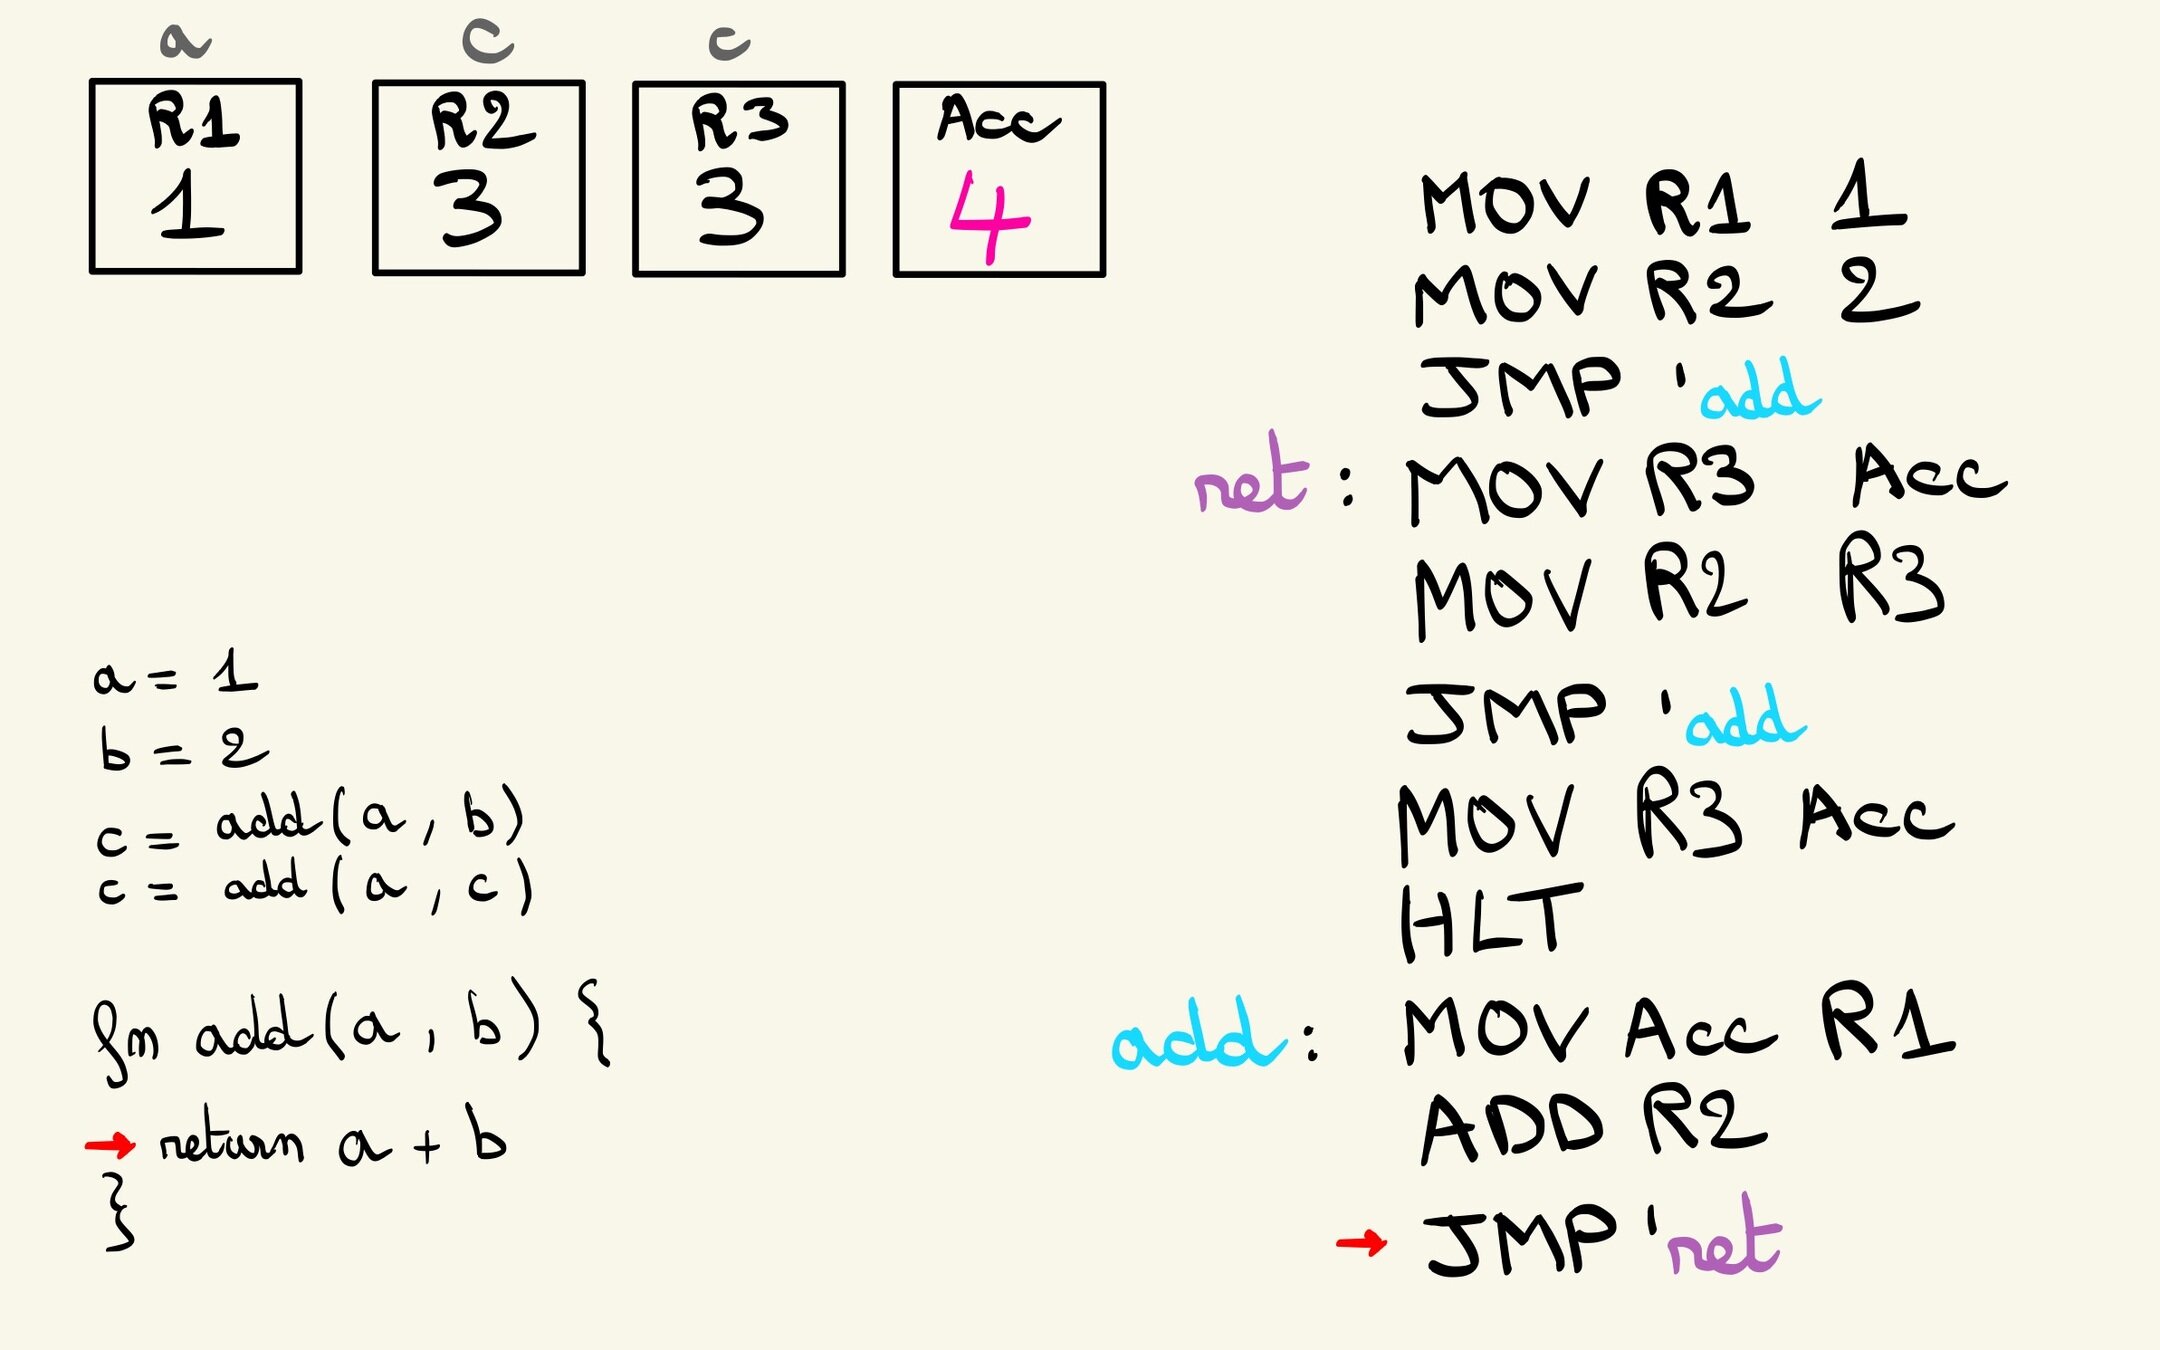 a C c
R1 R2 R3 Acc
1 3 3 4
a = 1
b = 2
c = add(a, b)
c = add(a, c)
fn add(a, b) {
→ return a + b
}
MOV R1 1
MOV R2 2
JMP 'add
ret: MOV R3 Acc
MOV R2 R3
JMP 'add
MOV R3 Acc
HLT
add: MOV Acc R1
ADD R2
→ JMP 'ret